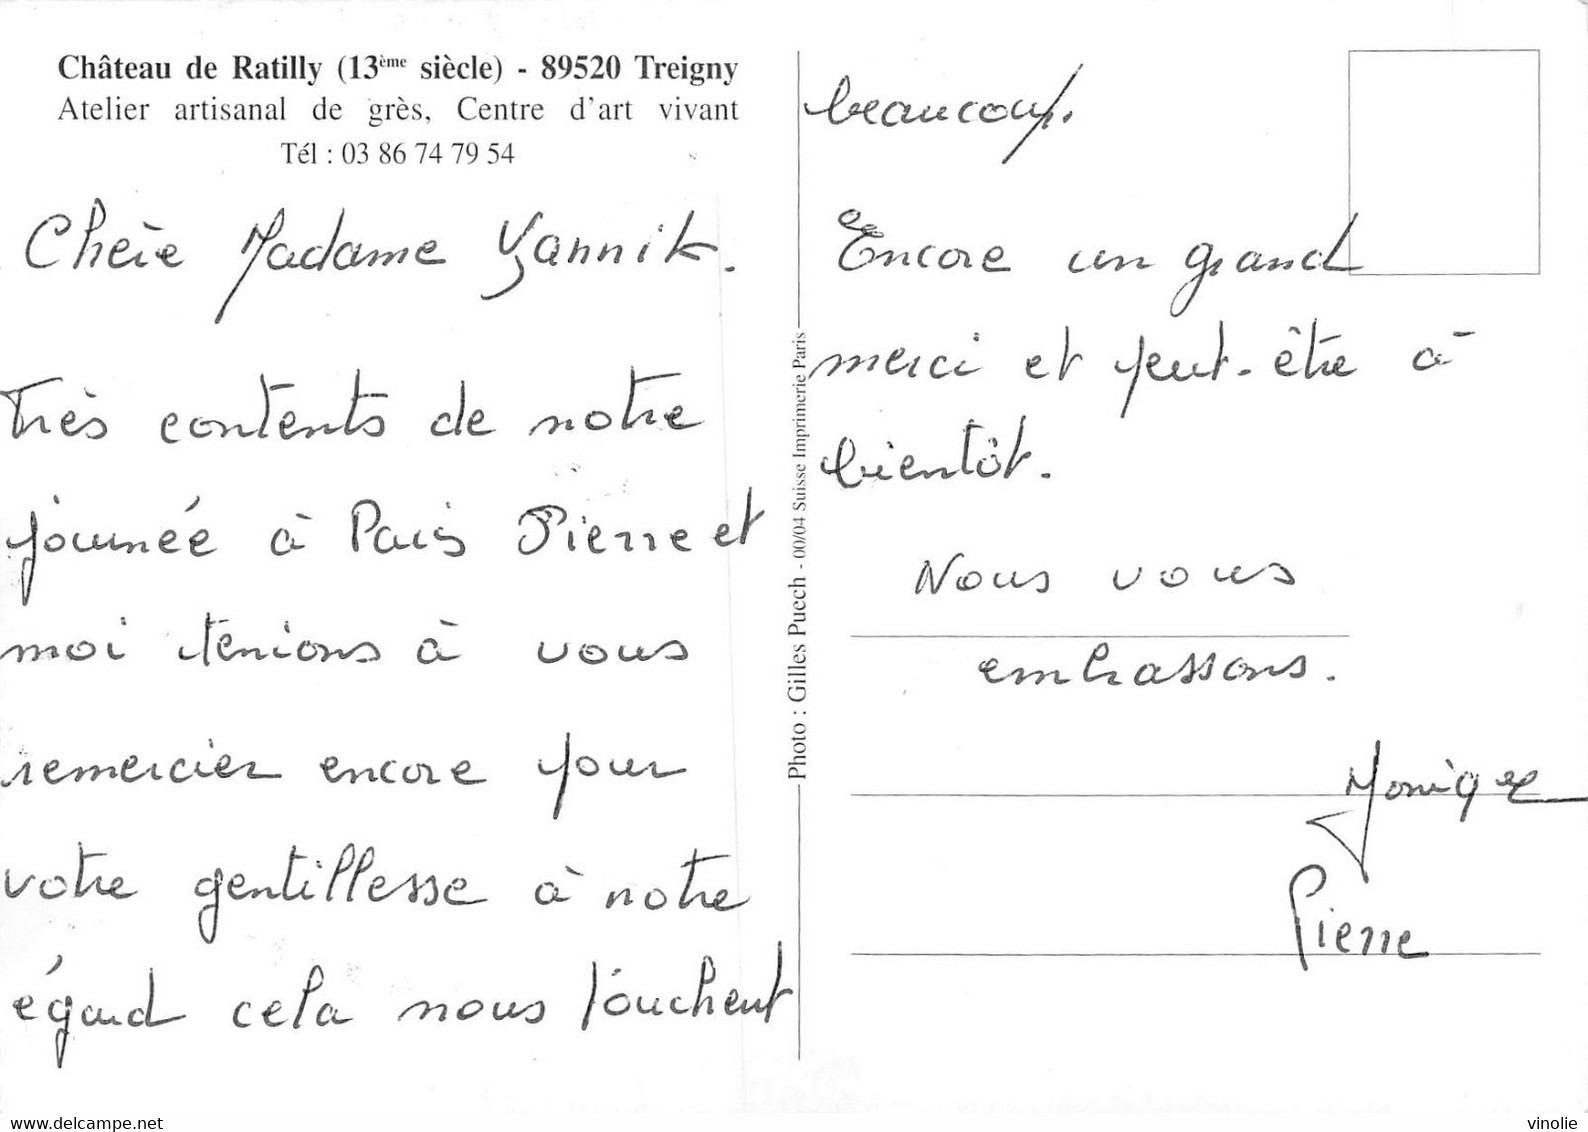 Château de Ratilly (13ème siècle) - 89520 Treigny
Atelier artisanal de grès, Centre d'art vivant
Tél : 03 86 74 79 54
Chère Madame Yannik.
Très contents de notre
journée à Paris Pierre et
moi tenions à vous
remercier encore pour
votre gentillesse à notre
égard cela nous touchent
Photo : Gilles Puech - 00/04 Suisse Imprimerie Paris
beaucoup.
Encore un grand
merci et peut-être à
bientôt.
Nous vous
embrassons.
Monique
Pierre
vinolie